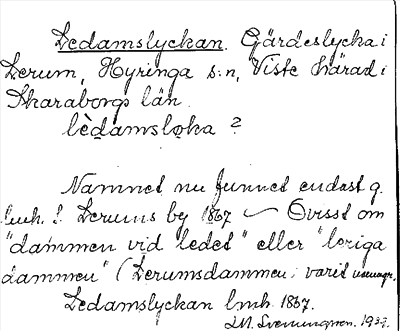 Ledamslyckan. Gärdeslycka i
Lerum, Hyringa s:n, Viste härad i
Skaraborgs län.
lèdamsløka ?
Namnet nu funnet endast g.
lmh. t. Lerums by 1867 — Ovisst om
"dammen vid ledet" eller "leriga
dammen" (Lerumsdammen i varit
Ledamslyckan lmh. 1867.
Svenningson. 193